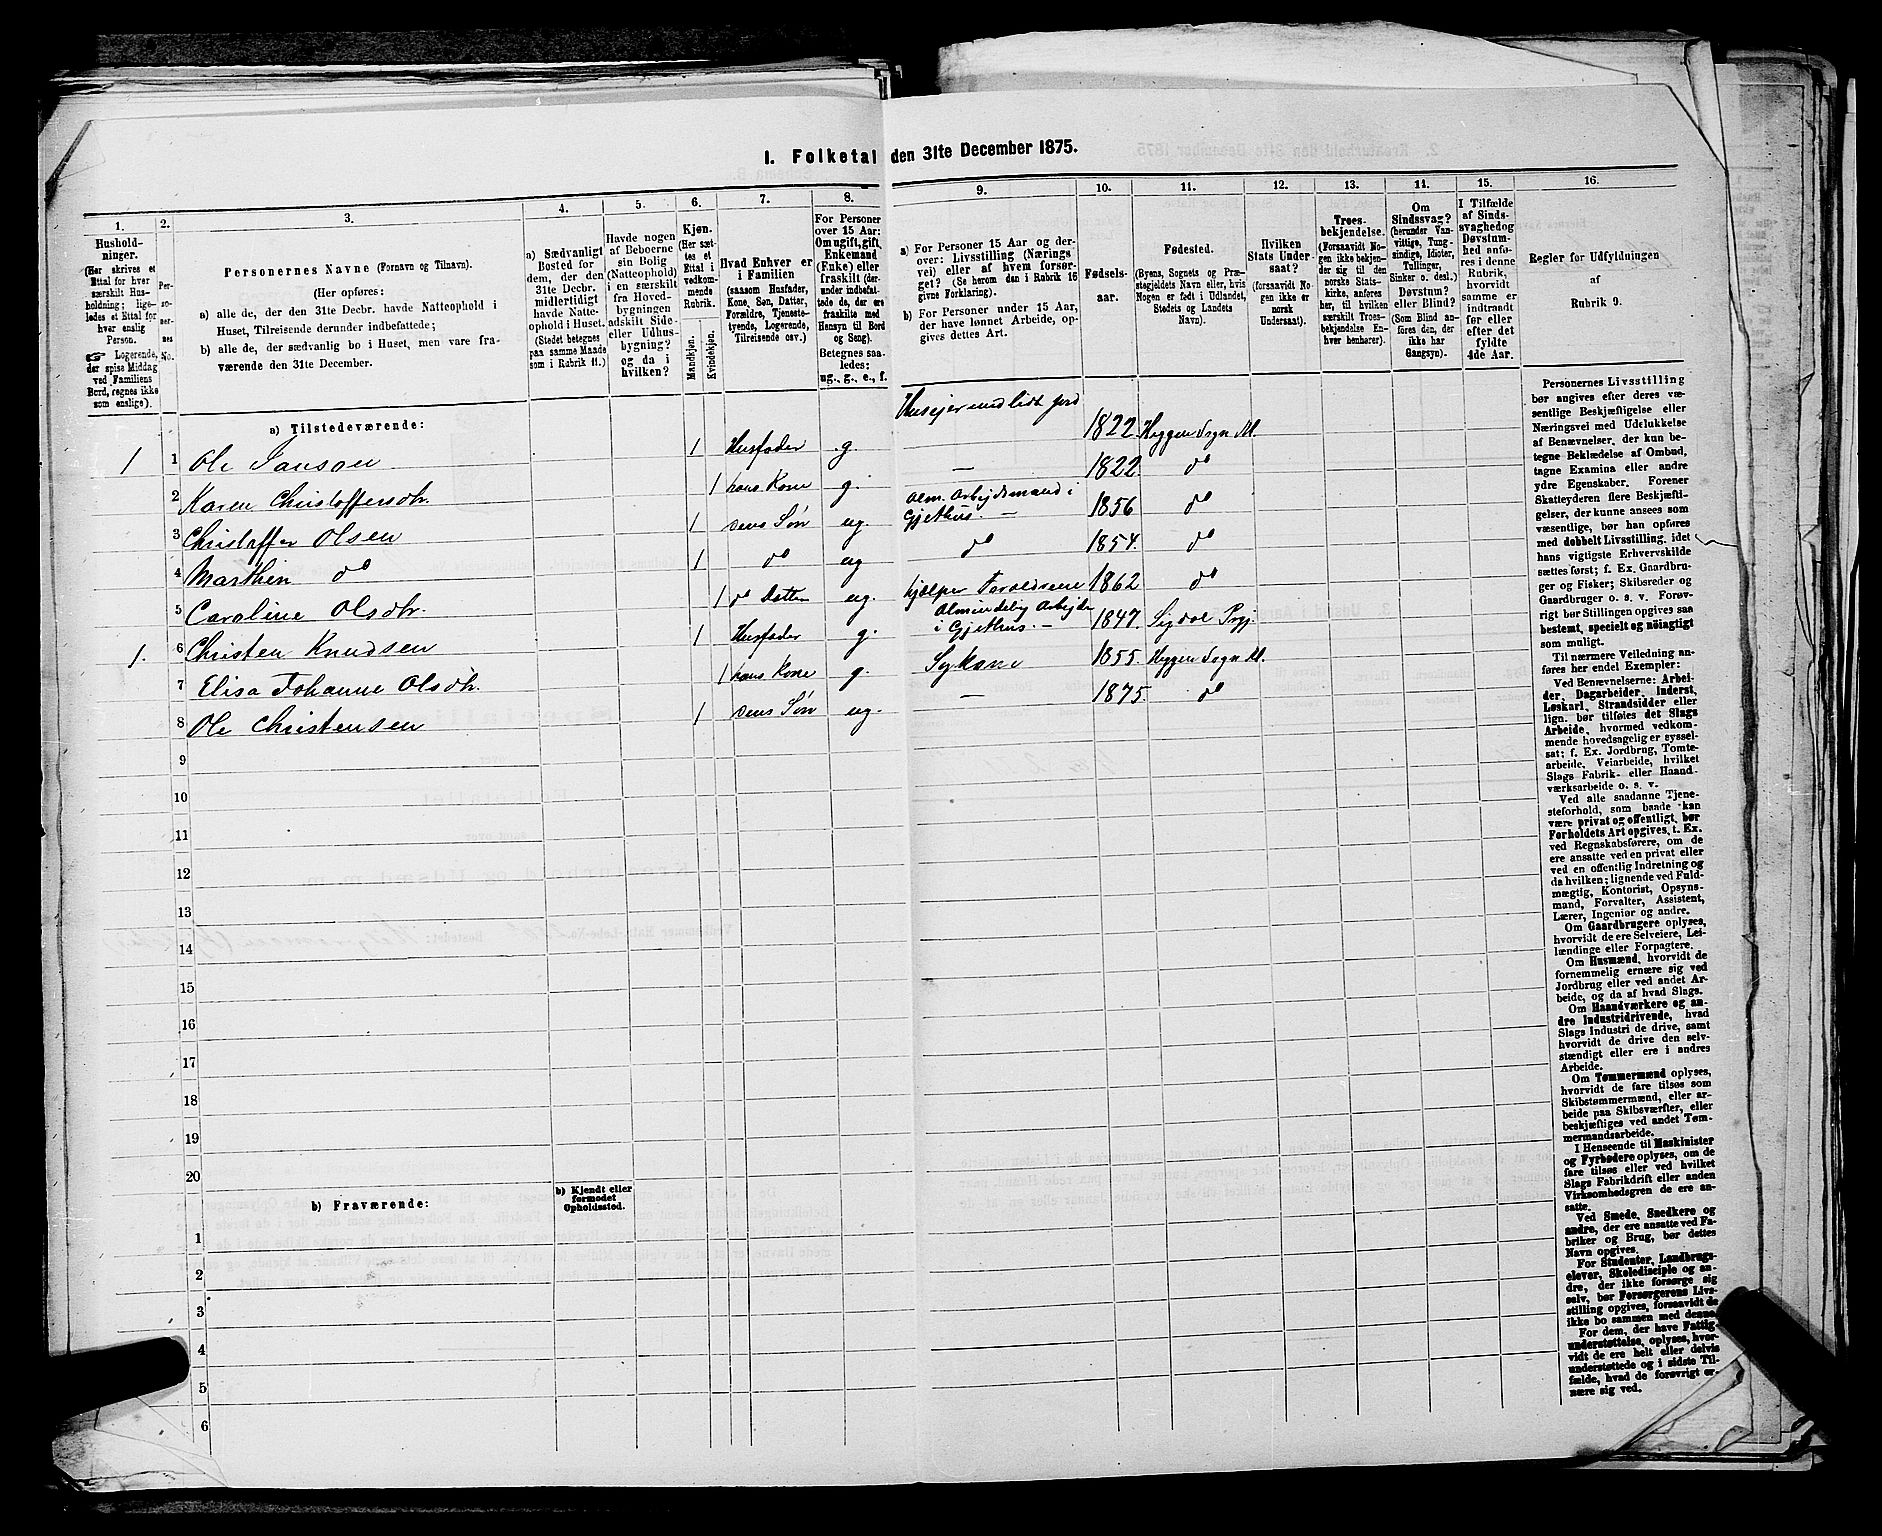 I. Folketal den 31te December 1875.
1.
2.
3.
4.
5.
6.
7.
8.
9.
10.
11.
12.
13.
14.
15.
16.
Hushold-
ninger.
(Her skrives et
Ettal for hver
særskilt Hus-
holdning; lige-
ledes et Ettal for
hver enslig
Person.
☞ Logerende,
der spise Middag
ved Familiens
Bord, regnes ikke
som enslige).
Per-
so-
ner-
nes
No.
Personernes Navne (Fornavn og Tilnavn).
(Her opføres:
a) alle de, der den 31te Decbr. havde Natteophold i
Huset, Tilreisende derunder indbefattede;
b) alle de, der sædvanlig bo i Huset, men vare fra-
værende den 31te December.
a) Sædvanligt
Bosted for
dem, der den
31te Decbr.
midlertidigt
havde Natte-
ophold i Huset.
(Stedet betegnes
paa samme Maade
som i Rubrik 11.)
Havde nogen
af Beboerne
sin Bolig
(Natteophold)
i en særskilt
fra Hoved-
bygningen
adskilt Side-
eller Udhus-
bygning?
og da i
hvilken?
Kjøn.
(Her sæt-
tes et
Ettal i
vedkom-
mende
Rubrik.
Mandkjøn.
Kvindekjøn.
Hvad Enhver er
i Familien
(saasom Husfader,
Kone, Søn, Datter,
Forældre, Tjeneste-
tyende, Logerende,
Tilreisende osv.)
For Personer
over 15 Aar:
Om ugift, gift,
Enkemand
(Enke) eller
fraskilt (der-
under indbefat-
tede de, der ere
fraskilte med
Hensyn til Bord
og Seng).
Betegnes saa-
ledes;
ug., g., e., f.
a) For Personer 15 Aar og der-
over: Livsstilling (Nærings
vei) eller af hvem forsør-
get? (Se herom den i Rubrik 16
givne Forklaring).
b) For Personer under 15 Aar,
der have lønnet Arbeide, op-
gives dettes Art.
Fødsels-
aar.
Fødested.
(Byens, Sognets og Præ-
stegjeldets Navn eller, hvis
Nogen er født i Udlandet,
Stedets og Landets
Navn).
Hvilken
Stats Under-
saat?
(forsaavidt No-
gen ikke er
norsk
Undersaat).
Troes-
bekjendelse.
(Forsaavidt No-
gen ikke bekjen-
der sig til den
norske Stats-
kirke, anføres
her, til hvilken
særskilt Troes-
bekjendelse En-
hver henhører).
Om
Sindssvag?
(herunder Van-
vittige, Tung-
sindige, Idioter,
Tullinger,
Sinker o. desl.)
Døvstum?
eller Blind?
(Som Blind an-
føres den, der
ikke har
Gangsyn).
I Tilfælde
af Sinds-
svaghedog
Døvstum-
hed anfø-
res i denne
Rubrik,
hvorvidt
samme er
indtraadt
før eller
efter det
fyldte
4de Aar.
Regler for Udfyldningen
af
Rubrik 9.
a) Tilstedeværende:
1 1 Ole Jansen 1 Husfader g. Huseier med lidt jord 1822. Heggen Sogn M.
2 Karen Christoffersdtr. 1 hans Kone g. — 1822. do
3 Christoffer Olsen 1 deres Søn ug. Alm. Arbejdsmand i Gjethus. — 1856 do
4 Marthin do 1 do ug do 1854. do
5 Caroline Olsdtr. 1 do Datter ug. hjælper Foreldrene 1862 do
1. 6 Christen Knudsen 1 Husfader g. Almindelig Arbejder i Gjethus. — 1847. Sigdal Prgj.
7 Elisa Johanne Olsdtr. 1 hans Kone g. Sykone 1855. Heggen Sogn M.
8 Ole Christensen 1 deres Søn ug. — 1875. do
9
10
11
12
13
14
15
16
17
18
19
20
b) Fraværende:
b) Kjendt eller
formodet
Opholdssted.
1
2
3
4
5
6
Personernes Livsstilling
bør angives efter deres væ-
sentlige Beskjæftigelse eller
Næringsvei med Udelukkelse
af Benævnelser, der kun be-
tegne Beklædelse af Ombud,
tagne Examina eller andre
ydre Egenskaber. Forener
Skatteyderen flere Beskjæfti-
gelser, der kunne ansees som
væsentlige, bør han opføres
med dobbelt Livsstilling, idet
hans vigtigste Erhvervskilde
sættes først; f. Ex. Gaardbru-
ger og Fisker; Skibsreder og
Gaardbruger o. s. v. Forøv-
rigt bør Stillingen opgives saa
bestemt, specielt og nöiagtigt
som muligt.
Til nærmere Veiledning an-
føres her endel Exempler:
Ved Benævnelserne: Arbei-
der, Dagarbeider, Inderst,
Løskarl, Strandsidder eller
lign. bør tilføies det Slags
Arbeide, hvormed vedkom-
mende hovedsagelig er syssel-
sat; f. Ex. Jordbrug, Tomte-
arbeide, Veiarbeide, hvilket
Slags Fabrik- eller Haand-
værksarbeide o. s. v.
Ved alle saadanne Tjene-
steforhold, som baade kan
være privat og offentligt, bør
Forholdets Art opgives, t. Ex.
ved Regnskabsførere, om de
ere ansatte ved en privat eller
ved en offentlig Indretning og
da hvilken; lignende ved Fuld-
mægtig, Kontorist, Opsyns-
mand, Forvalter, Assistent,
Lærer, Ingeniør og andre.
Om Gaardbrugere oplyses,
hvorvidt de ere Selveiere, Lei-
lændinge eller Forpagtere.
Om Husmænd, hvorvidt de
fornemmelig ernære sig ved
Jordbrug eller ved andet Ar-
beide, og da af hvad Slags.
Om Haandværkere og an-
dre Industridrivende, hvad
Slags Industri de drive, samt
hvorvidt de drive den selv-
stændigt eller ere i andres
Arbeide.
Om Tømmermænd oplyses,
hvorvidt de fare tilsøs som
Skibstømmermænd, eller ar-
beide paa Skibsværfter, eller
beskjæftiges ved andet Tøm-
mermandsarbeide.
I Henseende til Maskinister
og Fyrbødere oplyses, om de
fare tilsøs eller ved hvilket
Slags Fabrikdrift eller anden
Virksomhedsgren de ere an-
satte.
Ved Smede, Snedkere og
andre, der ere ansatte ved Fa-
briker og Brug, bør dettes
Navn opgives.
For Studenter, Landbrugs-
elever, Skoledisciple og an-
dre, der ikke forsørge sig
selv, bør Forsørgerens Livs-
stilling opgives, forsaavidt de
ikke bo sammen med denne.
For dem, der have Fattig-
understøttelse, oplyses, hvor-
vidt de ere helt eller delvis
understøttede og i sidste Til-
fælde, hvad de forøvrigt er-
nære sig ved.